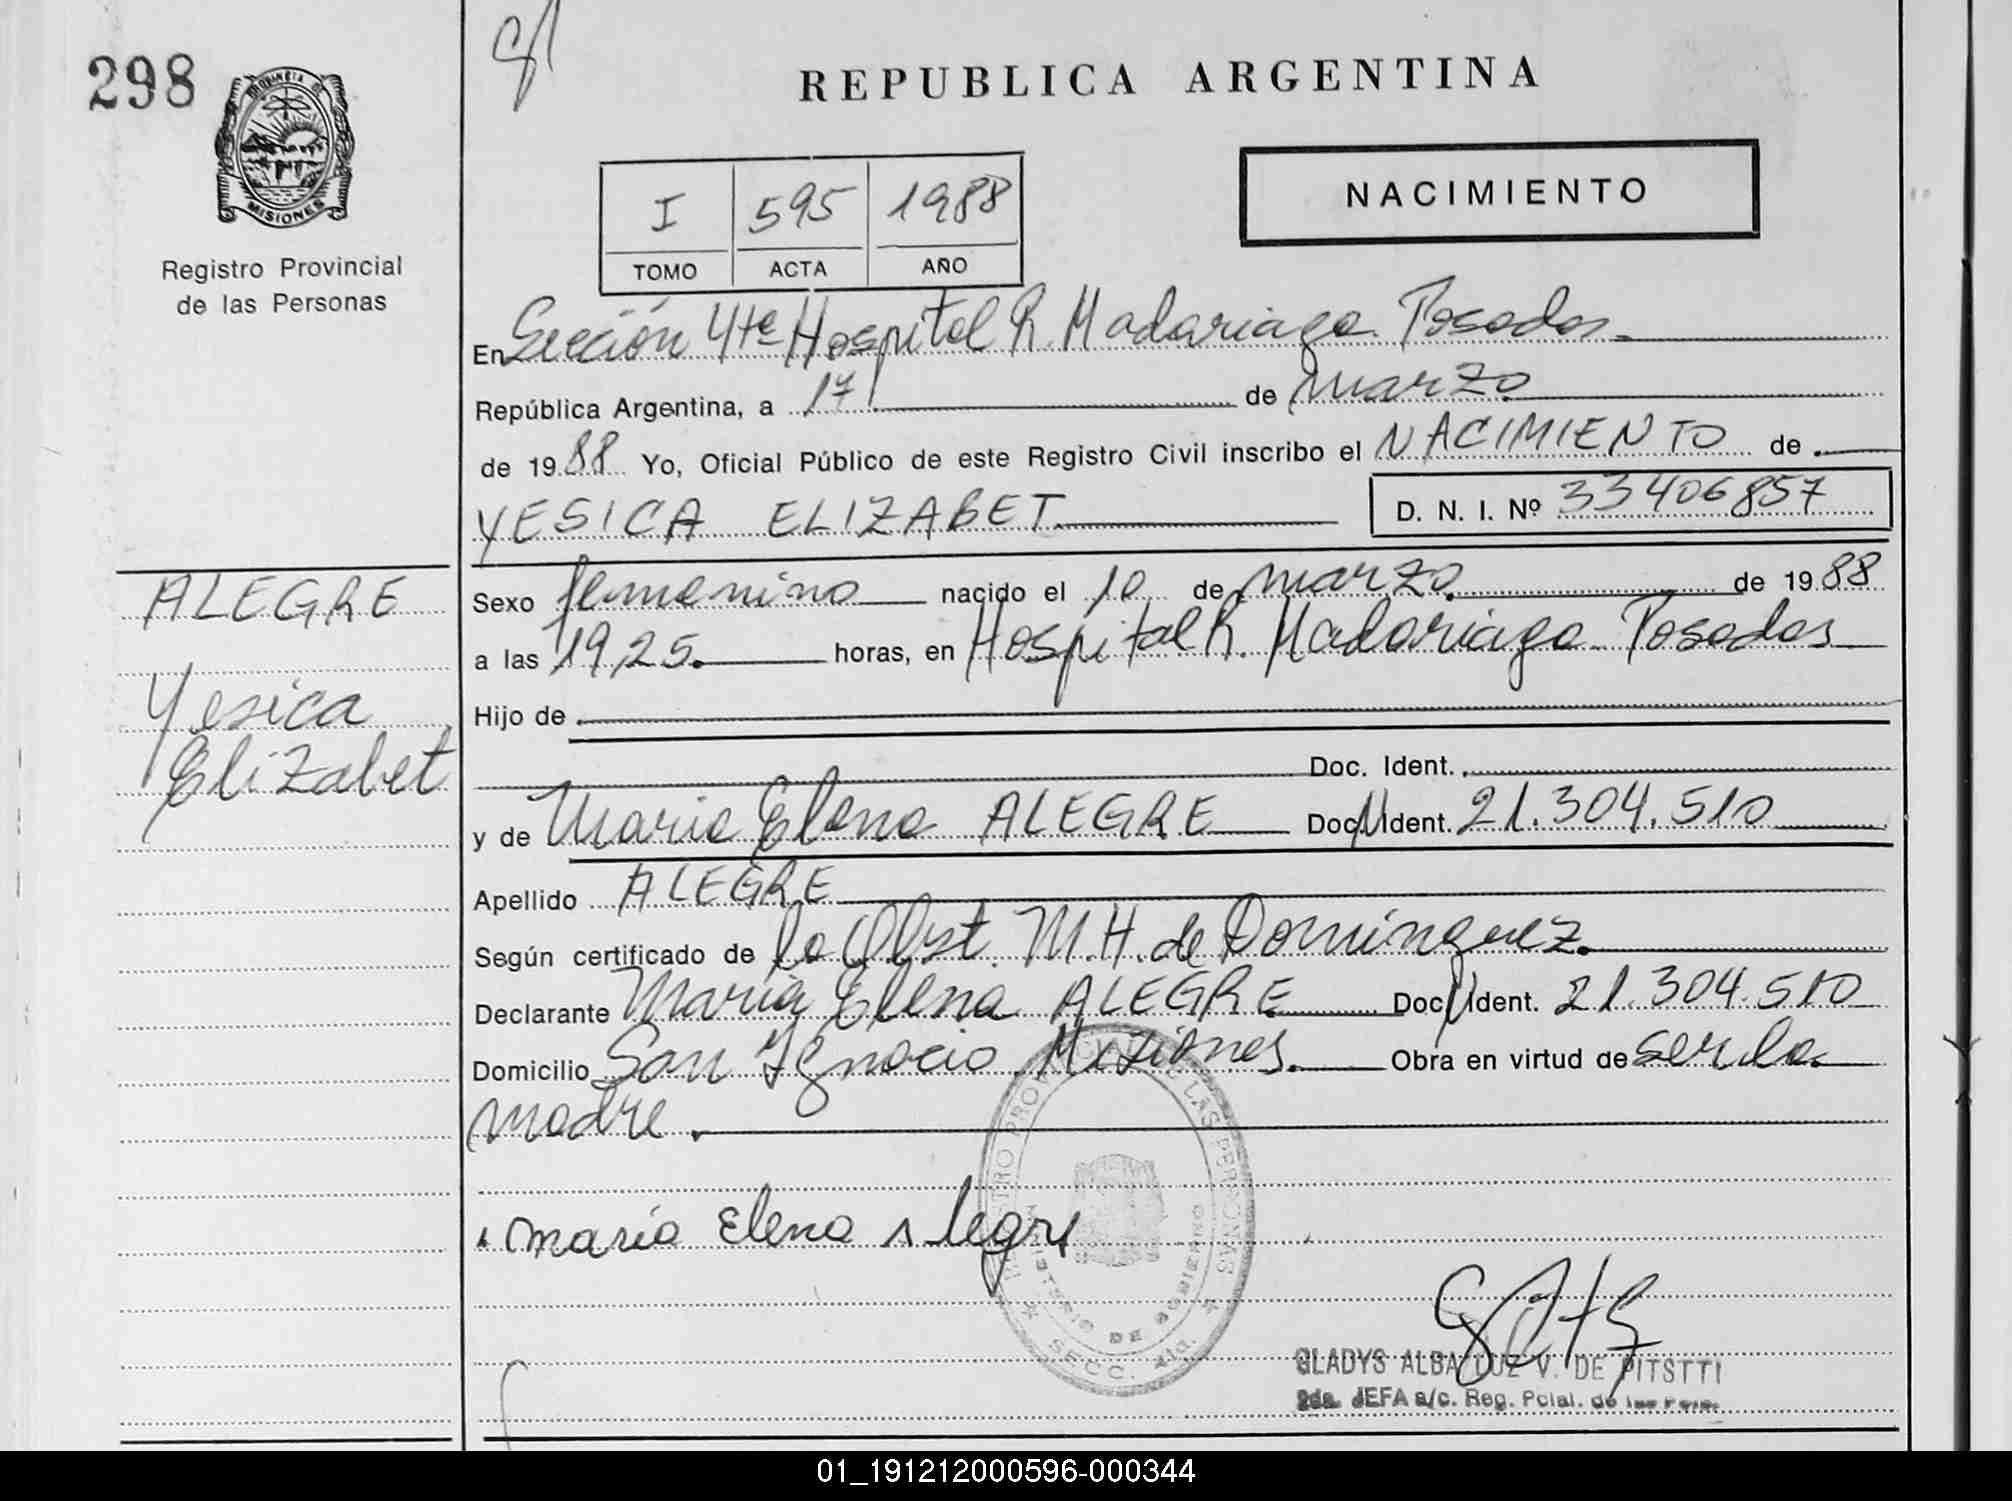 298
PROVINCIA DE
MISIONES
Registro Provincial
de las Personas
REPUBLICA ARGENTINA
NACIMIENTO
I 595 1988
TOMO ACTA AÑO
En Sección 4ta Hospital R. Madariaga. Posadas
República Argentina, a 17 de marzo
de 1988 Yo, Oficial Público de este Registro Civil inscribo el NACIMIENTO de
YESICA ELIZABET D. N. I. Nº 33406857
ALEGRE
Yesica
Elizabet
Sexo femenino nacido el 10 de marzo de 1988
a las 19,25 horas, en Hospital R. Madariaga Posadas
Hijo de
Doc. Ident.
y de Maria Elena ALEGRE Doc. Ident. 21.304.510
Apellido ALEGRE
Según certificado de la Obst. M.H. de Dominguez.
Declarante Maria Elena ALEGRE Doc. Ident. 21.304.510
Domicilio San Ignacio Misiones. Obra en virtud de ser la
madre.
maria Elena Alegre
REGISTRO PROVINCIAL DE LAS PERSONAS
MINISTERIO DE GOBIERNO
SECC. 4ta.
GLADYS ALBA LUZ V. DE PITSTTI
2da. JEFA a/c. Reg. Pcial. de las Pers.
01_191212000596-000344